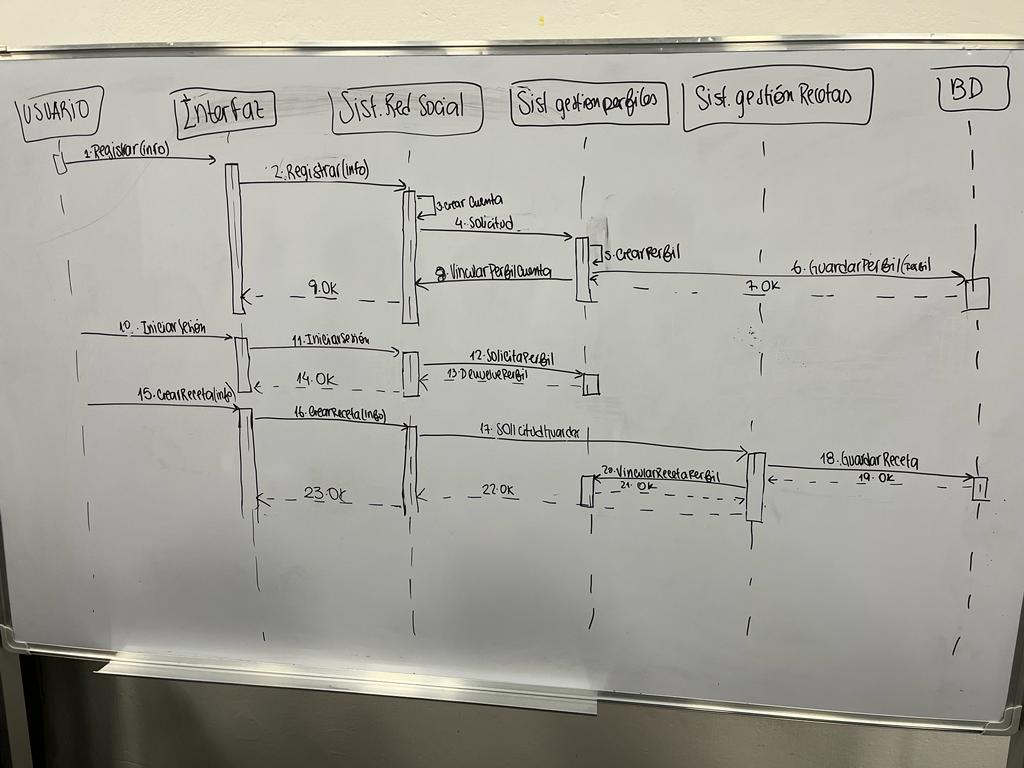 USUARIO
Interfaz
Sist. Red Social
Sist. gestión perfiles
Sist. gestión Recetas
BD
1. Registrar(info)
2. Registrar(info)
3. crear Cuenta
4. Solicitud
5. CrearPerfil
6. GuardarPerfil(Perfil
7. OK
8. VincularPerfilCuenta
9. OK
10. IniciarSesión
11. IniciarSesión
12. SolicitaPerfil
13. DevuelvePerfil
14. OK
15. CrearReceta(info)
16. CrearReceta(info)
17. SolicitudGuardar
18. GuardarReceta
19. OK
20. VincularRecetaPerfil
21. OK
22. OK
23. OK